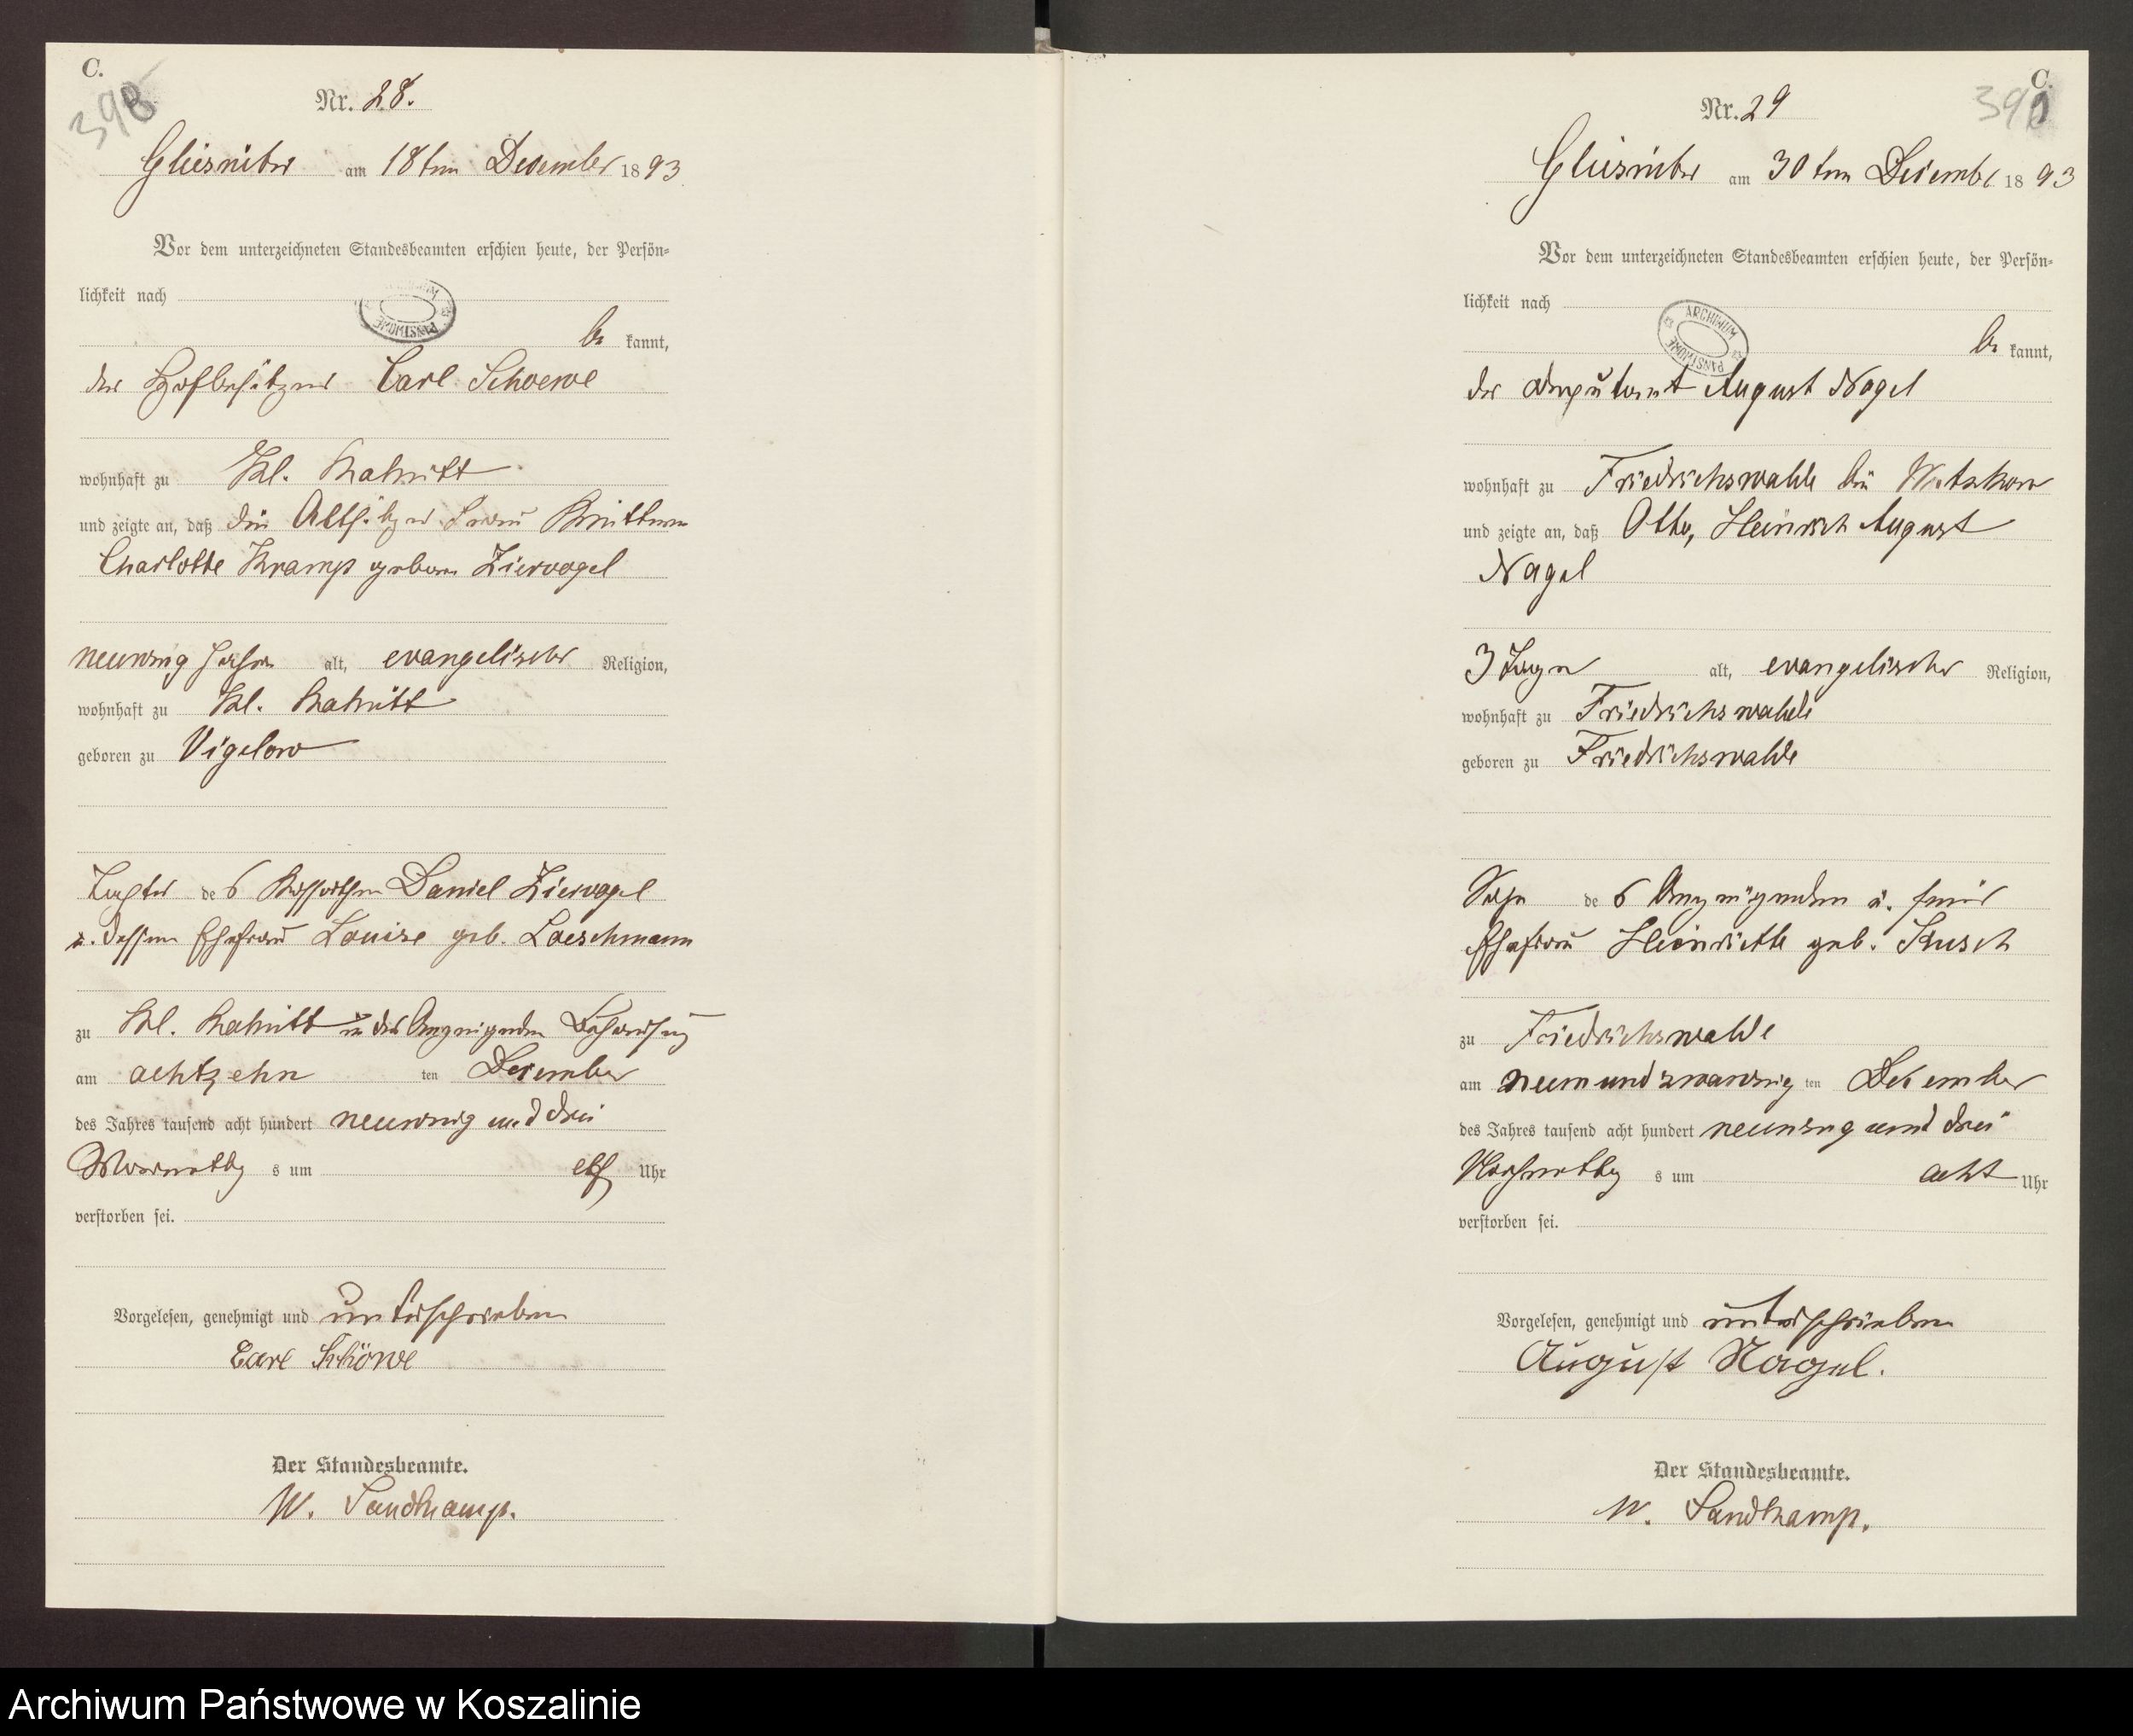 C.
398
Nr. 28.
am 18ten December 1893
Vor dem unterzeichneten Standesbeamten erschien heute, der Persön-
lichkeit nach
be kannt,
der Hofbesitzer Carl Schoewe
wohnhaft zu Kl.
und zeigte an, daß die Altsitzer Frau
Charlotte Kramp geboren Ziervogel
neunzig Jahre alt, evangelischer Religion,
wohnhaft zu Kl.
geboren zu Vigelow
Tochter des Daniel Ziervogel
u. dessen Ehefrau Louise geb. Loeschmann
zu Kl. in des Anzeigenden Behausung
am achtzehn ten December
des Jahres tausend acht hundert neunzig und drei
Vormittag s um elf Uhr
verstorben sei.
Vorgelesen, genehmigt und unterschrieben
Carl Schöwe
Der Standesbeamte.
W. Sandkamp.
C.
Nr. 29
am 30ten December 1893
Vor dem unterzeichneten Standesbeamten erschien heute, der Persön-
lichkeit nach
ARCHIWUM PAŃSTWOWE
be kannt,
der Deputant August Nagel
wohnhaft zu Friedrichswalde bei
und zeigte an, daß Otto, Heinrich August
Nagel
3 Tage alt, evangelischer Religion,
wohnhaft zu Friedrichswalde
geboren zu Friedrichswalde
Sohn des Anzeigenden u. seiner
Ehefrau Heinriette geb.
zu Friedrichswalde
am neunundzwanzig ten December
des Jahres tausend acht hundert neunzig und drei
Nachmittag s um acht Uhr
verstorben sei.
Vorgelesen, genehmigt und unterschrieben
August Nagel.
Der Standesbeamte.
W. Sandkamp.
Archiwum Państwowe w Koszalinie